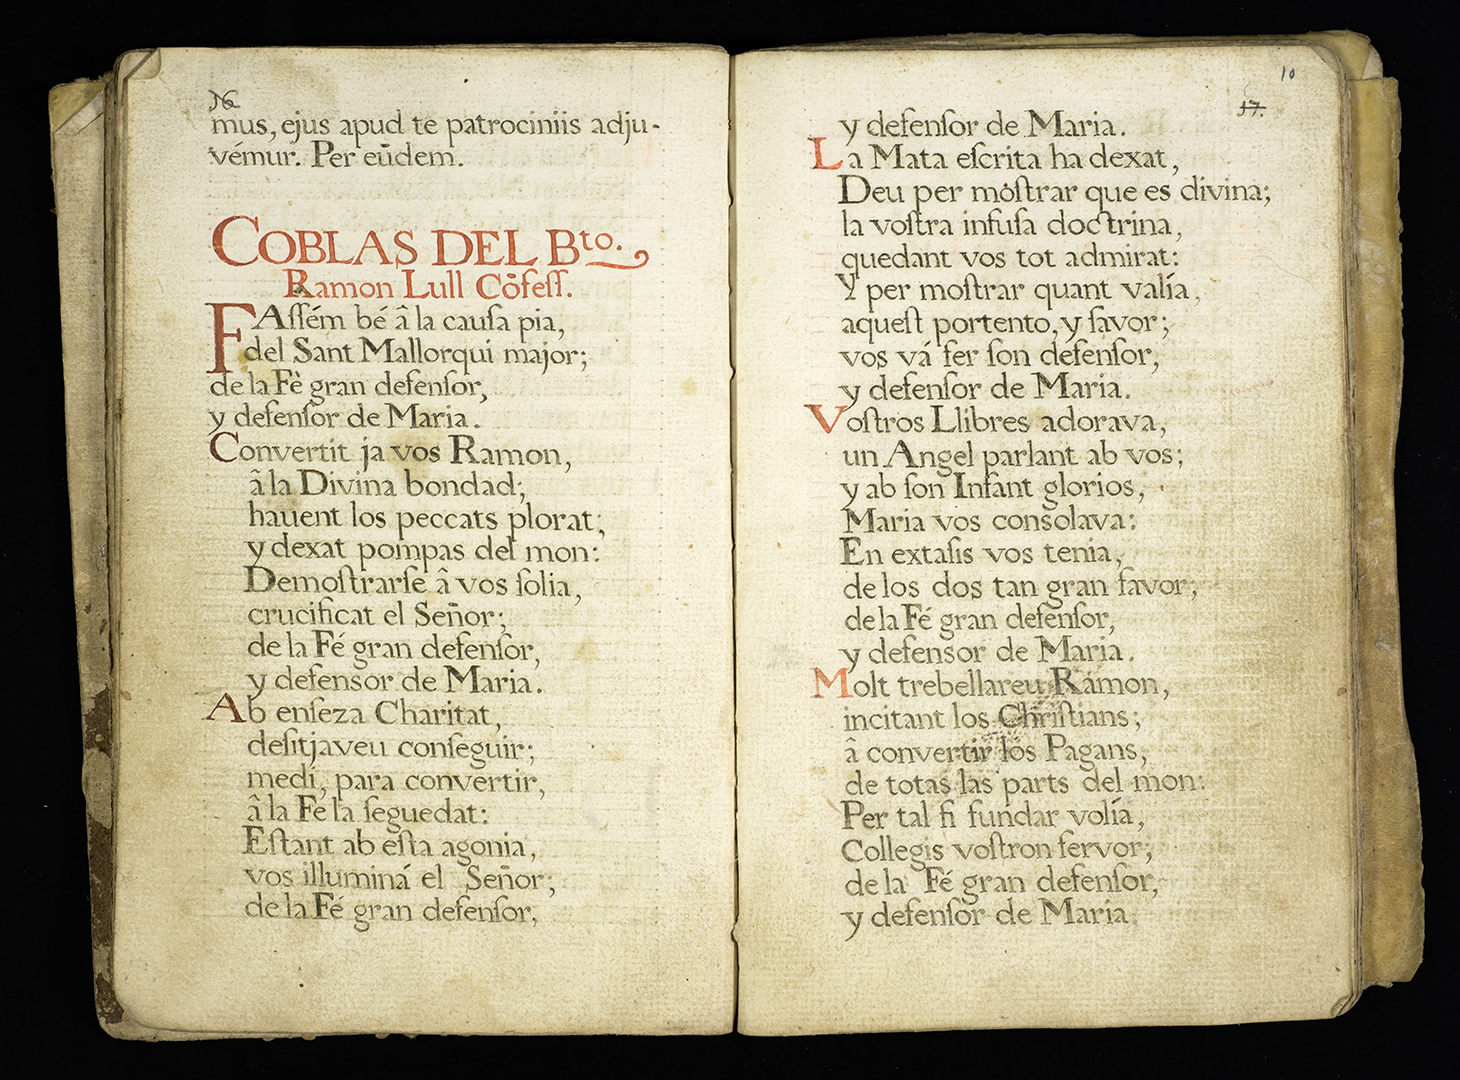 16
mus, ejus apud te patrociniis adju-
vémur. Per eūdem.
COBLAS DEL Bto.
Ramon Lull Cõfeſſ.
FAſſém bé â la cauſa pia,
del Sant Mallorqui major;
de la Fè gran defenſor,
y defenſor de Maria.
Convertit ja vos Ramon,
â la Divina bondad;
hauent los peccats plorat;
y dexat pompas del mon:
Demoſtrarſe â vos ſolia,
crucificat el Señor;
de la Fé gran defenſor,
y defensor de Maria.
Ab enſeza Charitat,
deſitjaveu conſeguir;
medi, para convertir,
â la Fe la ſeguedat:
Eſtant ab eſta agonia,
vos illuminá el Señor;
de la Fé gran defenſor,
10
17.
y defenſor de Maria.
La Mata eſcrita ha dexat,
Deu per móſtrar que es divina;
la voſtra infuſa doctrina,
quedant vos tot admirat:
Y per moſtrar quant valía,
aqueſt portento, y favor;
vos vá fer ſon defenſor,
y defenſor de Maria.
Voſtros Llibres adorava,
un Angel parlant ab vos;
y ab ſon Infant glorios,
Maria vos consolava:
En extaſis vos tenia,
de los dos tan gran favor;
de la Fé gran defenſor,
y defensor de Maria.
Molt trebellareu Ramon,
incitant los Chriſtians;
â convertir los Pagans,
de totas las parts del mon:
Per tal fi fundar volía,
Collegis voſtron fervor;
de la Fé gran defenſor,
y defenſor de Maria.